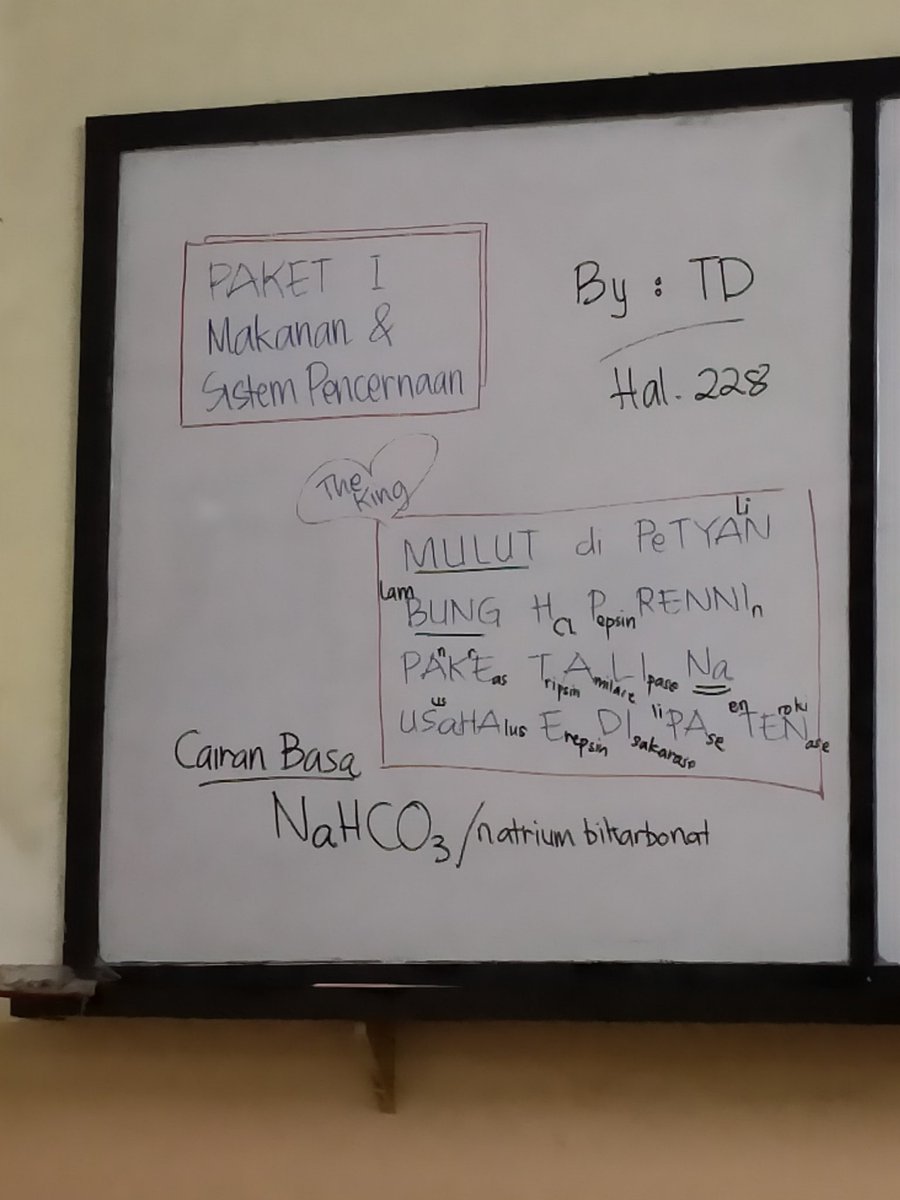 PAKET I
Makanan &
Sistem Pencernaan
By : TD
Hal. 228
The King
MULUT di PeTYALiN
LamBUNG HCl PepsinRENNIn
PAnKrEas Tripsin Amilase LIpase Na
USusaHAlus Erepsin DIsakarase liPAse enTErokiNase
Cairan Basa
NaHCO3/natrium bikarbonat